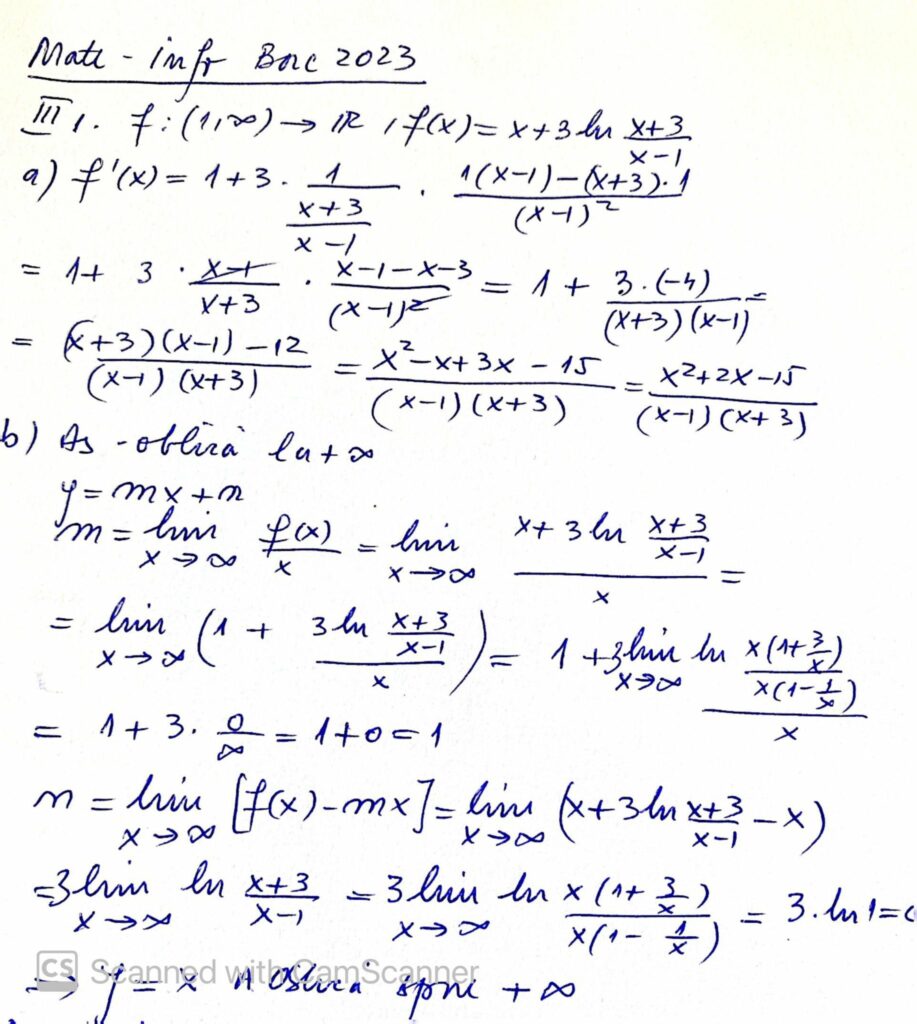 Mate - infr Bac 2023
III 1. f:(1,∞) → ℝ, f(x) = x+3 ln (x+3)/(x-1)
a) f'(x) = 1+3 · 1/((x+3)/(x-1)) · (1(x-1)-(x+3)·1)/(x-1)²
= 1+ 3 · (x-1)/(x+3) · (x-1-x-3)/(x-1)² = 1 + (3·(-4))/((x+3)(x-1)) =
= ((x+3)(x-1)-12)/((x-1)(x+3)) = (x²-x+3x-15)/((x-1)(x+3)) = (x²+2x-15)/((x-1)(x+3))
b) As - oblică la +∞
y = mx+n
m = lim x→∞ f(x)/x = lim x→∞ (x+3 ln (x+3)/(x-1))/x =
= lim x→∞ (1 + (3 ln (x+3)/(x-1))/x) = 1 + 3 lim x→∞ (ln (x(1+3/x))/(x(1-1/x)))/x
= 1+3· 0/∞ = 1+0=1
n = lim x→∞ [f(x)-mx] = lim x→∞ (x+3 ln (x+3)/(x-1) - x)
=3 lim x→∞ ln (x+3)/(x-1) = 3 lim x→∞ ln (x(1+3/x))/(x(1-1/x)) = 3·ln 1=0
CS Scanned with CamScanner
→ y = x A oblică spre +∞